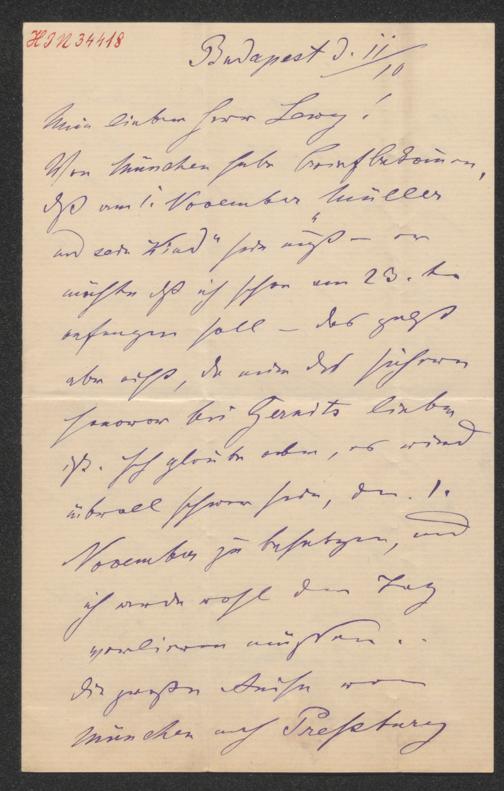 HIN 34418
Budapest d. 11/10
Mein lieber Herr Lewy!
Von München habe Brief bekommen,
daß am 1. November Müller
und sein "Kind" sein muß – er
möchte daß ich schon am 23. ten
anfangen soll – das geht
aber nicht, da mir das sichere
Honorar bei Gernits lieber
ist. Ich glaube aber, es wird
überall schwer sein, den 1.
November zu besetzen, und
ich werde wohl den Tag
verlieren müssen..
Die große Reise von
München nach Preßburg